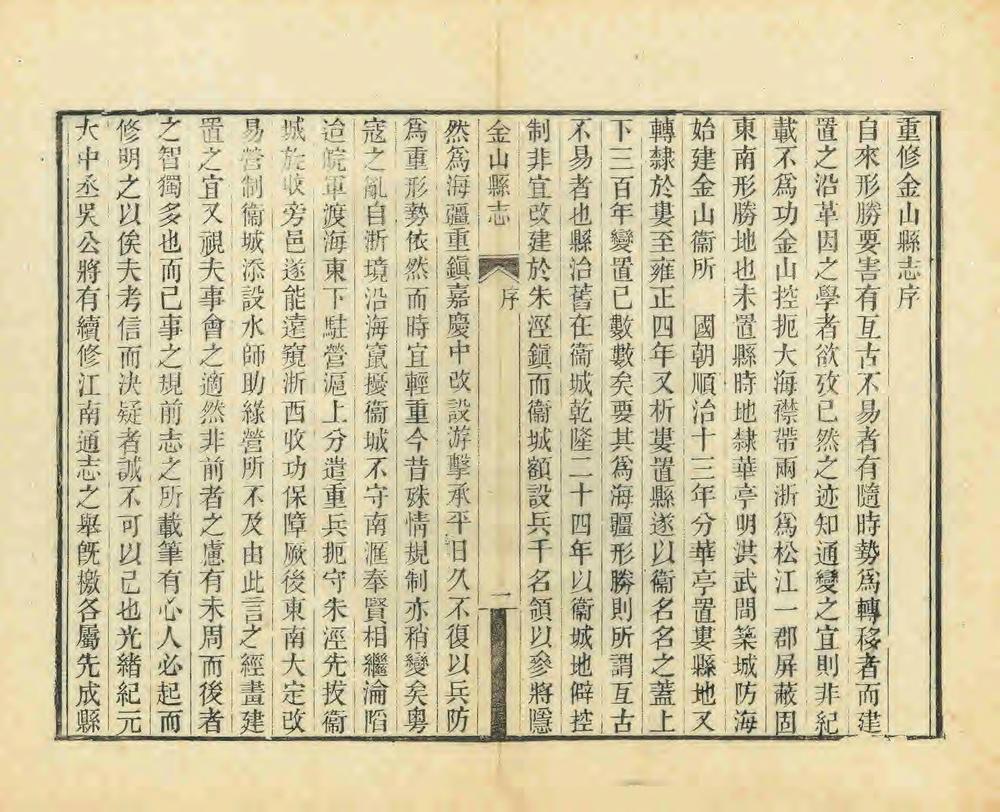 重修金山縣志序
自來形勝要害有亙古不易者有隨時勢爲轉移者而建
置之沿革因之學者欲攷已然之迹知通變之宜則非紀
載不爲功金山控扼大海襟帶兩浙爲松江一郡屏蔽固
東南形勝地也未置縣時地隸華亭明洪武間築城防海
始建金山衞所　國朝順治十三年分華亭置婁縣地又
轉隸於婁至雍正四年又析婁置縣遂以衞名名之蓋上
下三百年變置已數數矣要其爲海疆形勝則所謂亙古
不易者也縣治舊在衞城乾隆二十四年以衞城地僻控
制非宜改建於朱涇鎮而衞城額設兵千名領以參將隱
金山縣志　序　一
然爲海疆重鎮嘉慶中改設游擊承平日久不復以兵防
爲重形勢依然而時宜輕重今昔殊情規制亦稍變矣粵
寇之亂自浙境沿海竄擾衞城不守南滙奉賢相繼淪陷
迨皖軍渡海東下駐營滬上分遣重兵扼守朱涇先拔衞
城旋收旁邑遂能遠窺浙西收功保障厥後東南大定改
易營制衞城添設水師助綠營所不及由此言之經畫建
置之宜又視夫事會之適然非前者之慮有未周而後者
之智獨多也而已事之規前志之所載筆有心人必起而
修明之以俟夫考信而決疑者誠不可以已也光緒紀元
大中丞吳公將有續修江南通志之舉旣檄各屬先成縣